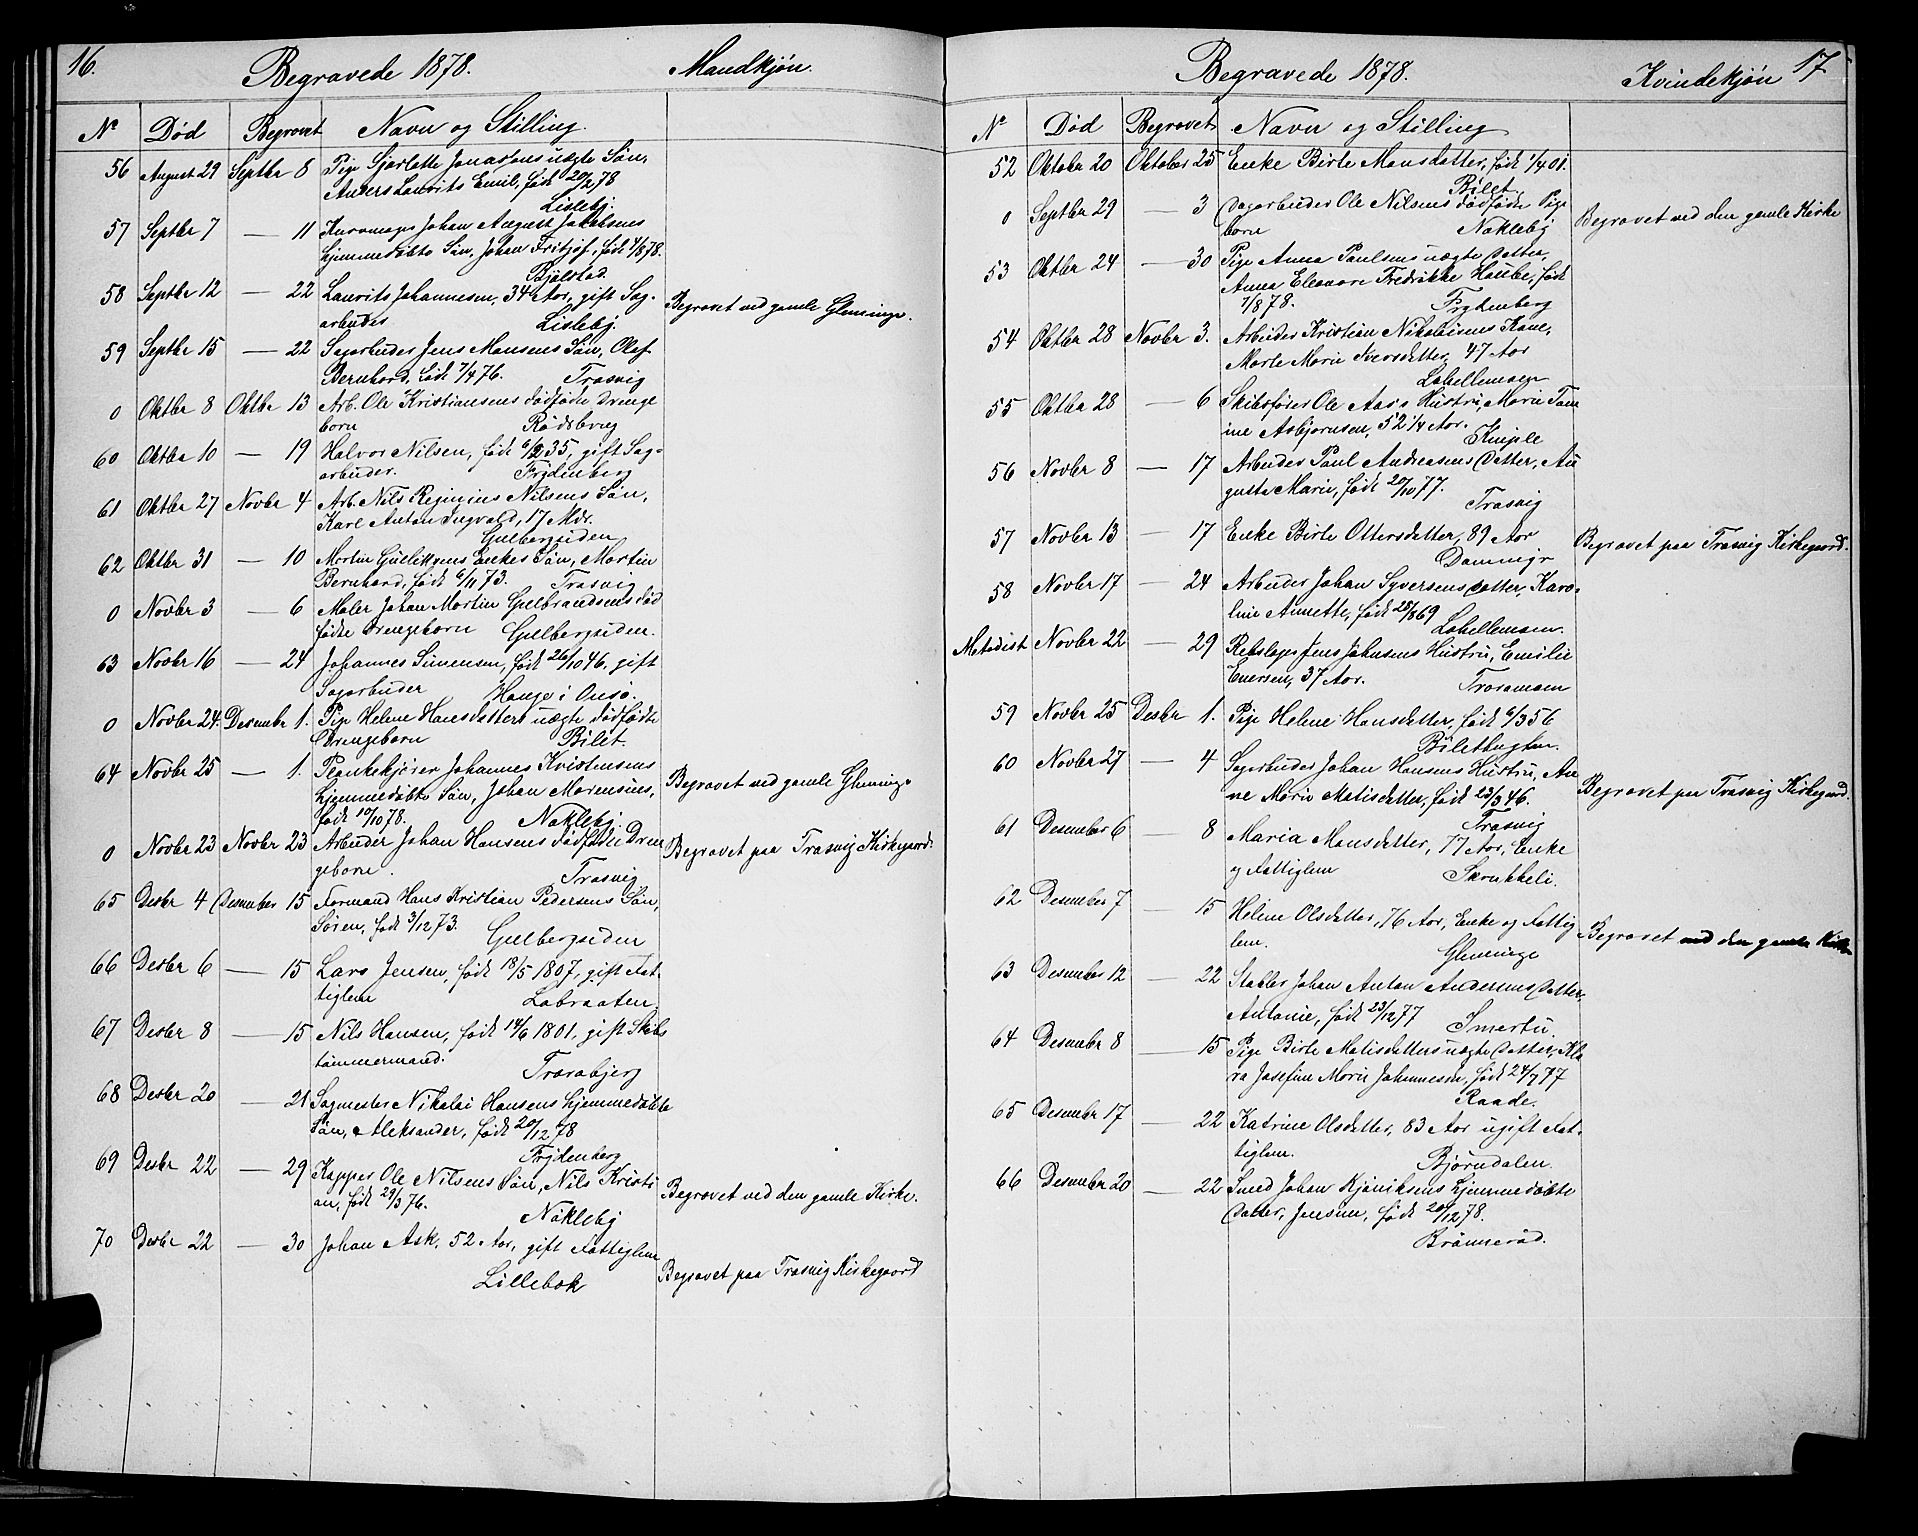 16.
Begravede 1878. Mandkjøn.
No Død Begravet Navn og Stilling.
56 August 29 Septbr 8 Pige Sjarlotte Jonassens uægte Søn,
Anders Laurits Emil, født 20/2 78
Lisleby.
57 Septbr 7 — 11 Johan August Jakobsens
hjemmedøbte Søn, Johan Fritjof, født 4/8 78.
Bjølstad.
58 Septbr 12 — 22 Laurits Johannesen, 34 Aar, gift Sag-
arbuder Lisleby. Begravet ved gamle Glemminge.
59 Septbr 15 — 22 Sagarbuder Jens Hansens Søn, Olaf
Bernhard, født 7/4 76. Trosvig
0 Oktbr 8 Oktbr 13 Arb. Ole Kristiansens dødfødte Drenge
born Rødsbrug
60 Oktbr 10 — 19 Halvor Nilsen, født 35, gift Sag-
arbuder. Frydenberg
61 Oktbr 27 Novbr 4 Arb. Nils Reginius Nilsens Søn,
Karl Anton Ingvald, 17 Mdr.
Gulbergsiden
62 Oktbr 31 — 10 Martin Gulliksens Enkes Søn, Martin
Bernhard, født 6/11 73. Trosvig
0 Novbr 3 — 6 Maler Johan Martin Gulbrandsens død
fødte Drengeborn Gulbergsiden.
63 Novbr 16 — 24 Johannes Simensen, født 26/10 46, gift
Sagarbuder Hauge i Onsø.
0 Novbr 24. Desember 1. Pige Helene Hansdatters uægte dødfødte
Drengeborn Bilet.
64 Novbr 25 — 1. Plankekjører Johannes Kristensens
hjemmedøbte Søn, Johan Marensius, Begravet ved gamle Gleminge
født 10/10 78. Nøkleby.
0 Novbr 23 Novbr 23 Arbuder Johan Hansens dødfødte Dren
geborn. Trosvig Begravet paa Trosvig Kirkegaard.
65 Desbr 4 Desember 15 Formand Hans Kristian Pedersens Søn,
Søren, født 3/12 73. Gulbergsiden
66 Desbr 6 — 15 Lars Jensen, født 18/5 1807, gift Fat-
tiglem Labraaten.
67 Desbr 8 — 15 Nils Hansen, født 14/6 1801, gift Skibs
tømmermand. Trarabjerg
68 Desbr 20 — 21 Sagmester Nikolai Hansens hjemmedøbte
Søn, Aleksander, født 20/12 78
Frydenberg
69 Desbr 22 — 29 Kapper Ole Nilsens Søn, Nils Kristi
an, født 29/3 76. Begravet ved den gamle Kirke.
Nøkleby
70 Desbr 22 — 30 Johan Ask, 52 Aar, gift Fattiglem
Lillebæk Begravet paa Trosvig Kirkegaard
17
Begravede 1878. Kvindekjøn
No Død Begravet Navn og Stilling
52 Oktober 20 Oktober 25 Enke Birte Hansdatter, født 1/4 01.
Bilet.
0 Septbr 29 — 3 Dagarbuder Ole Nilsens dødfødte Pige
born Nøkleby Begravet ved den gamle Kirke
53 Oktbr 24 — 30 Pige Anna Paulsens uægte Datter,
Anna Eleonore Fredrikke Haube, født
7/8 78. Frydenberg
54 Oktbr 28 Novbr 3. Arbuder Kristian Nikolaisens Kone,
Marte Marie Iversdatter, 47 Aar
Labellemoen
55 Oktbr 28 — 6 Skibsfører Ole Aas's Hustru, Marie Tom
ine Asbjørnsen, 52 1/4 Aar.
Kniple
56 Novbr 8 — 17 Arbuder Paul Andreasens Datter, Au
gusta Marie, født 20/10 77.
Trosvig
57 Novbr 13 — 17 Enke Birte Ottersdatter, 89 Aar
Dammyr Begravet paa Trosvig Kirkegaard.
58 Novbr 17 — 24 Arbuder Johan Syversens Datter, Karo-
line Annette, født 25/8 69
Labellemoen.
Metodist Novbr 22 — 29 Rebslager Jens Johnsens Hustru, Emilie
Enersen, 37 Aar. Traramoen
59 Novbr 25 Desbr 1. Pige Helene Hansdatter, født 6/3 56
Biletbugten.
60 Novbr 27 — 4 Sagarbuder Johan Hansens Hustru, An
ne Marie Matisdatter, født 23/3 46. Begravet paa Trosvig Kirkegaard.
Trosvig
61 Desember 6 — 8 Maria Hansdatter, 77 Aar, Enke
og Fattiglem Skrukkeli.
62 Desember 7 — 15 Helene Olsdatter, 76 Aar, Enke og Fattig
lem. Gleminge Begravet ved den gamle Kirke
63 Desember 12 — 22 Stabler Johan Anton Andersens Datter,
Antonie, født 23/12 77 Smertu.
64 Desember 8 — 15 Pige Birte Matisdatters uægte Datter, Kla
ra Josefine Marie Johannesen, født 24/7 77
Raade.
65 Desember 17 — 22 Katrine Olsdatter, 83 Aar ugift Fat-
tiglem. Bjørndalen.
66 Desember 20 — 22 Smed Johan Kjøniksens hjemmedøbte
Datter, Jensine, født 20/12 78.
Brønnerød.